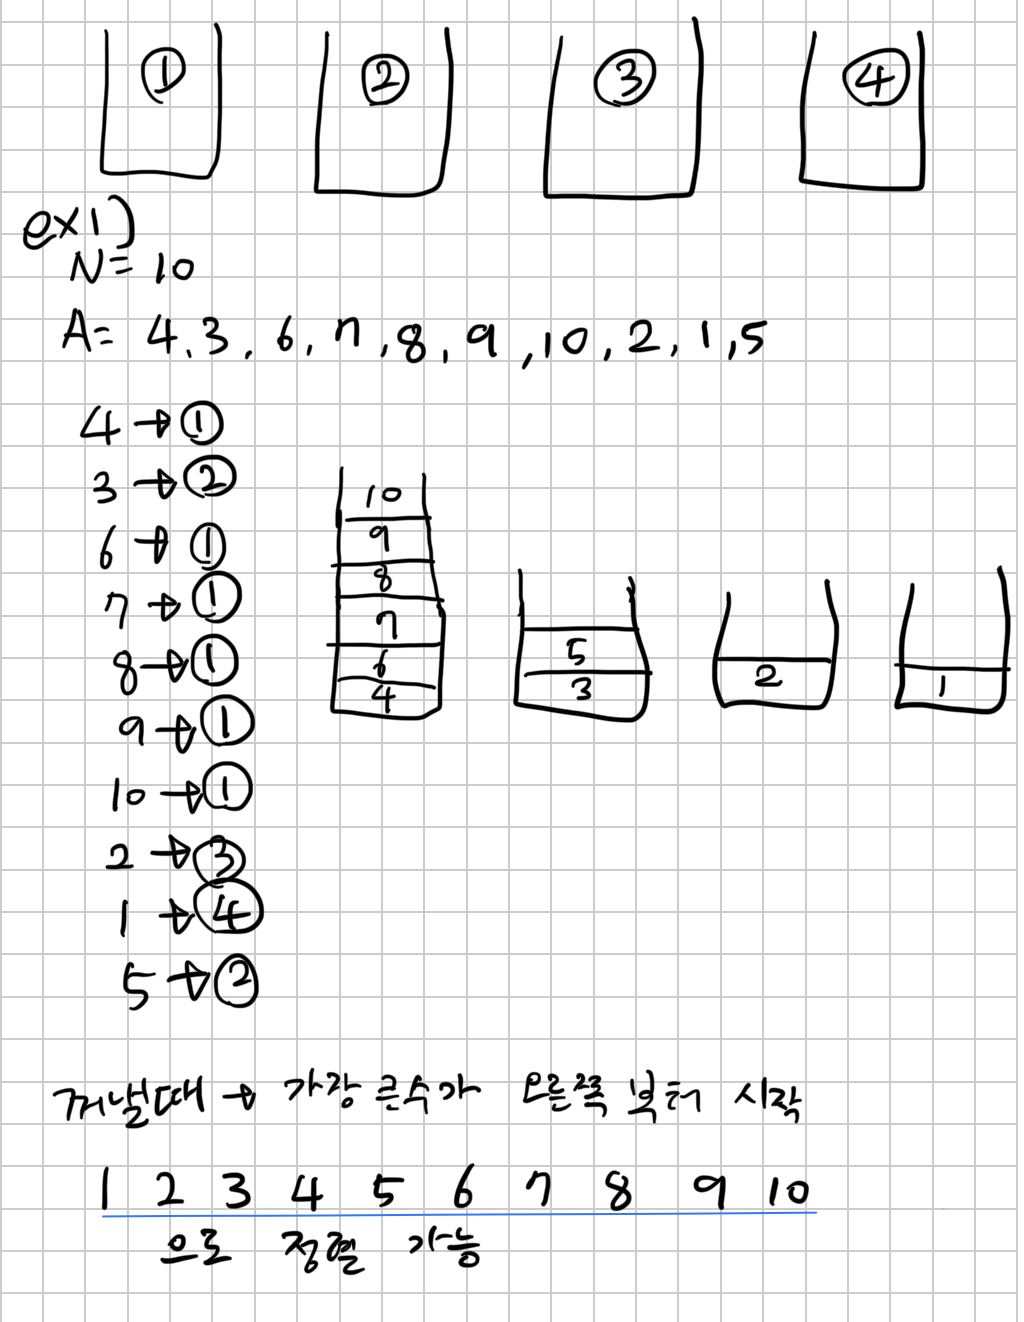 ① ② ③ ④
ex1)
N= 10
A= 4, 3, 6, 7, 8, 9, 10, 2, 1, 5
4 → ①
3 → ②
6 → ①
7 → ①
8 → ①
9 → ①
10 → ①
2 → ③
1 → ④
5 → ②
10
9
8
7
6
4
5
3
2
1
꺼낼때 → 가장 큰수가 오른쪽 부터 시작
1 2 3 4 5 6 7 8 9 10
으로 정렬 가능